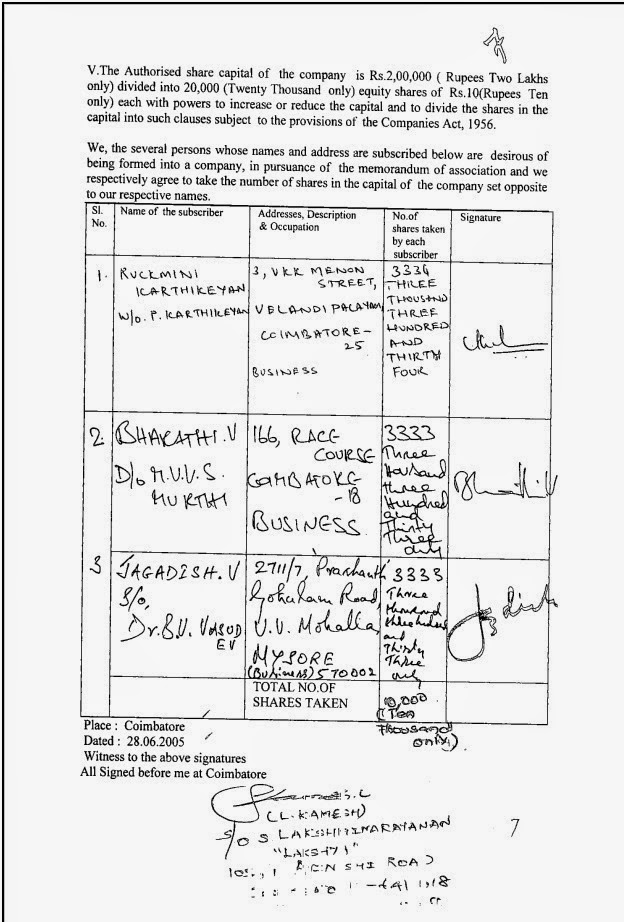 V.The Authorised share capital of the company is Rs.2,00,000 ( Rupees Two Lakhs
only) divided into 20,000 (Twenty Thousand only) equity shares of Rs.10(Rupees Ten
only) each with powers to increase or reduce the capital and to divide the shares in the
capital into such clauses subject to the provisions of the Companies Act, 1956.
We, the several persons whose names and address are subscribed below are desirous of
being formed into a company, in pursuance of the memorandum of association and we
respectively agree to take the number of shares in the capital of the company set opposite
to our respective names.
Sl. No.
Name of the subscriber
Addresses, Description
& Occupation
No.of
shares taken
by each
subscriber
Signature
1.
RUCKMINI
KARTHIKEYAN
W/o. P. KARTHIKEYAN
3, VKK MENON
STREET,
VELANDIPALAYAM,
COIMBATORE-
25
BUSINESS
3334
THREE
THOUSAND
THREE
HUNDRED
AND
THIRTY
FOUR
2
BHARATHI.V
D/o M.V.V.S.
MURTHI
166, RACE
COURSE
COIMBATORE
-18
BUSINESS
3333
Three
thousand
three
Hundred
and
Thirty
Three
only
3
JAGADISH.V
S/o,
Dr.S.V. VASUD
EV
2711/7, Prashanth
Gokulam Road,
V.V. Mohalla,
MYSORE
(Business) 570002
3333
Three
thousand
three hundred
and
Thirty
Three
only
TOTAL NO.OF
SHARES TAKEN
10,000
(TEN
THOUSAND
ONLY)
Place : Coimbatore
Dated : 28.06.2005
Witness to the above signatures
All Signed before me at Coimbatore
(L.KAMESH)
S/O S LAKSHMINARAYANAN
ROAD
7